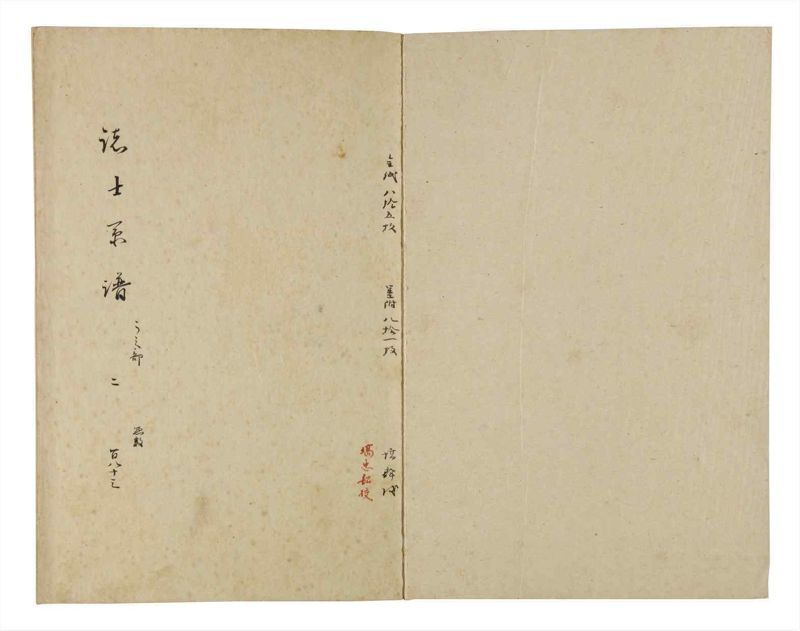 全紙八拾五枚
墨附八拾一枚
塙忠韶校
諸士系譜
うノ部
二
惣数
百八十三